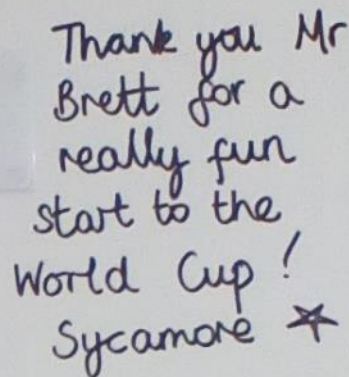 Thank you Mr
Brett for a
really fun
start to the
World Cup!
Sycamore